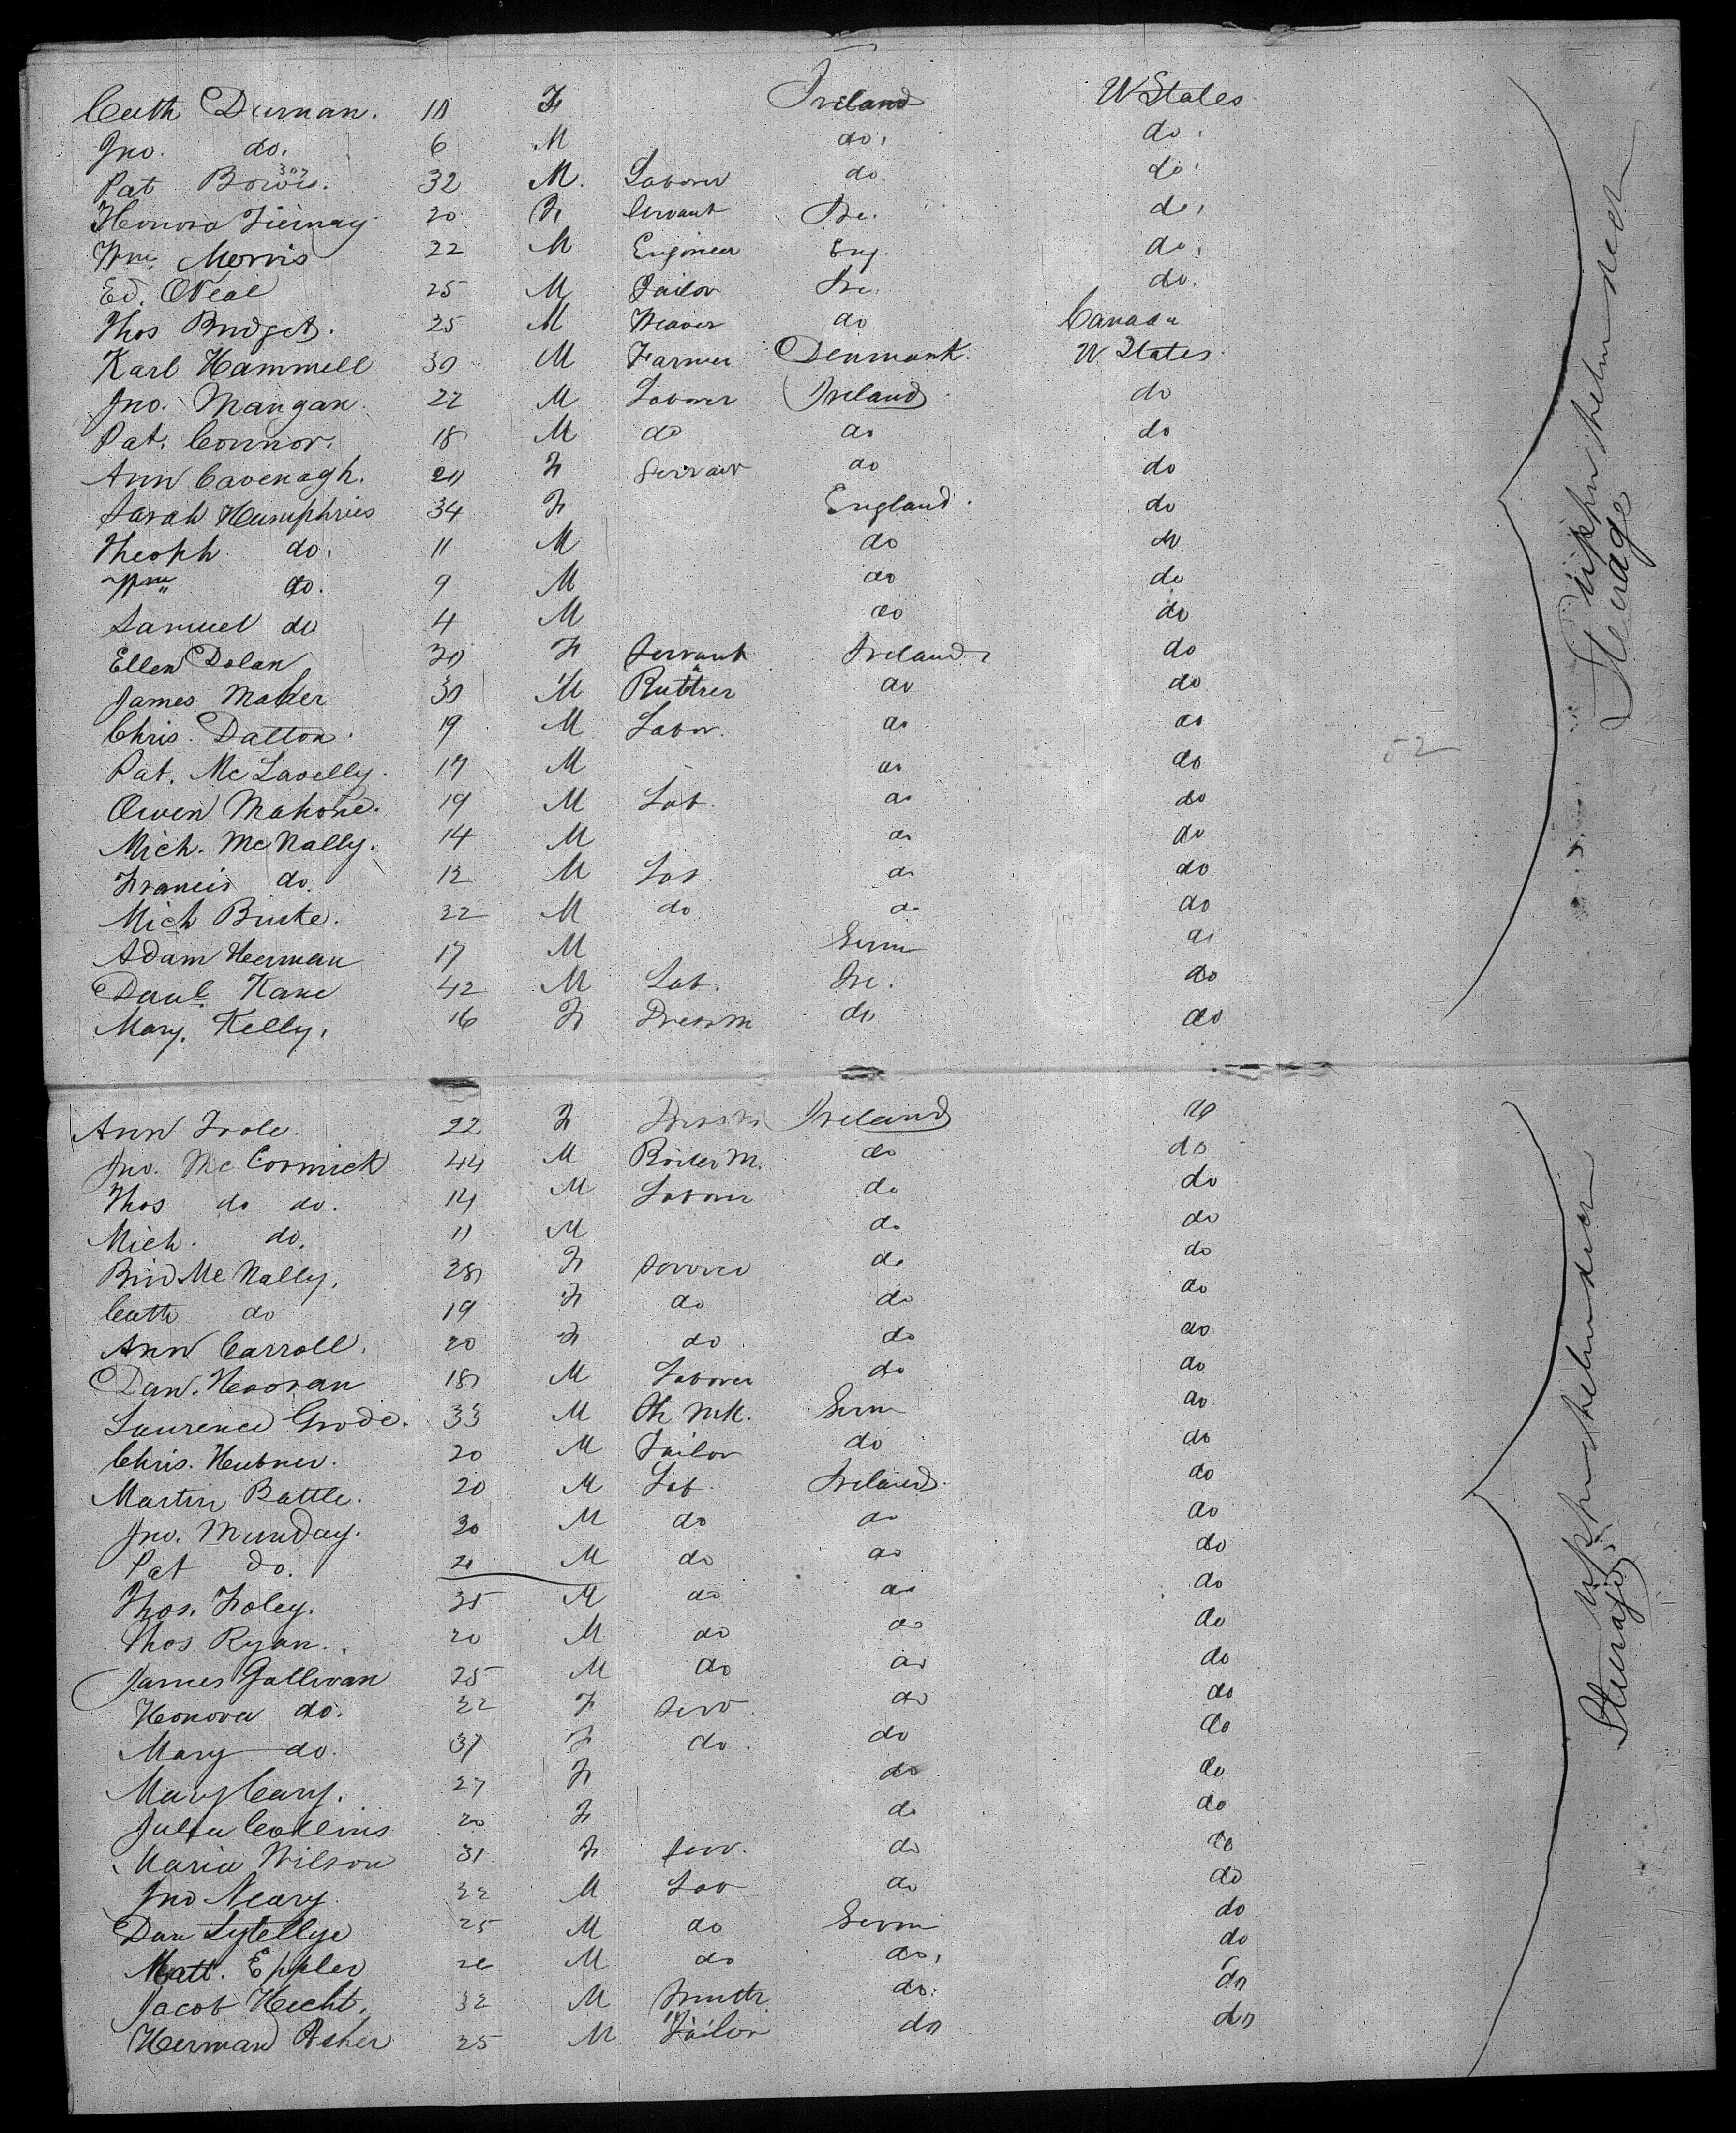 Cath Durnan. 10 F Ireland U States
Jno. do. 6 M do. do.
Pat 32 M. Laborer do. do.
Honora Tiernay 20 F Servant Ire. do.
Wm. Morris 22 M Engineer Eng. do.
Ed. ONeal 25 M Tailor Ire. do.
Thos Bridget. 25 M Weaver do Canada
Karl Hammell 30 M Farmer Denmark. U States.
Jno. Mangan. 22 M Laborer Ireland do
Pat. Connor. 18 M do do do
Ann Cavenagh. 20 F Servant do do
Sarah Humphries 34 F England. do
Theoph do. 11 M do do
Wm do. 9 M do do
Samuel do 4 M do do
Ellen Dolan 30 F Servant Ireland do
James Maher 30 M do do
Chris. Dalton. 19 M Labor. do do
Pat. McLavelly. 17 M do do
Owen Mahone. 19 M Lab. do do
Mich. McNally. 14 M do do
Francis do. 12 M Lab. do do
Mich Burke. 22 M do do do
Adam Herman 17 M Germ do
Danl. Kane 42 M Lab. Ire. do
Mary. Kelly. 16 F Dressm do do
52
Upper
Sterage
Ann 22 F Dressm Ireland do
Jno. McCormick 44 M Boiler M. do do
Thos do do. 14 M Laborer do do
Mich. do. 11 M do do
McNally. 28 F do do
Cath do 19 F do do do
Ann Carroll. 20 F do do do
Dan. Hooran 18 M Laborer do do
Laurence Grode. 33 M Germ do
Chris. Hubner. 20 M Tailor do do
Martin Battle. 20 M Lab. Ireland. do
Jno. Munday. 30 M do do do
Pat do. 21 M do do do
Thos. Foley. 35 M do do do
Thos Ryan. 20 M do do do
James Gallivan 25 M do do do
Honora do. 22 F Serv. do do
Mary do. 37 F do. do do
Mary Cary. 27 F do do
Julia Collins 20 F do do
Maria Wilson 31 F Serv. do do
Jno Neary. 22 M Lab do do
Dan Lytellye 25 M do Germ do
Matt. Eppler 26 M do do. do
Jacob Hecht. 32 M Smith do. do
Herman Asher 25 M Tailor do do
Upper
Sterage